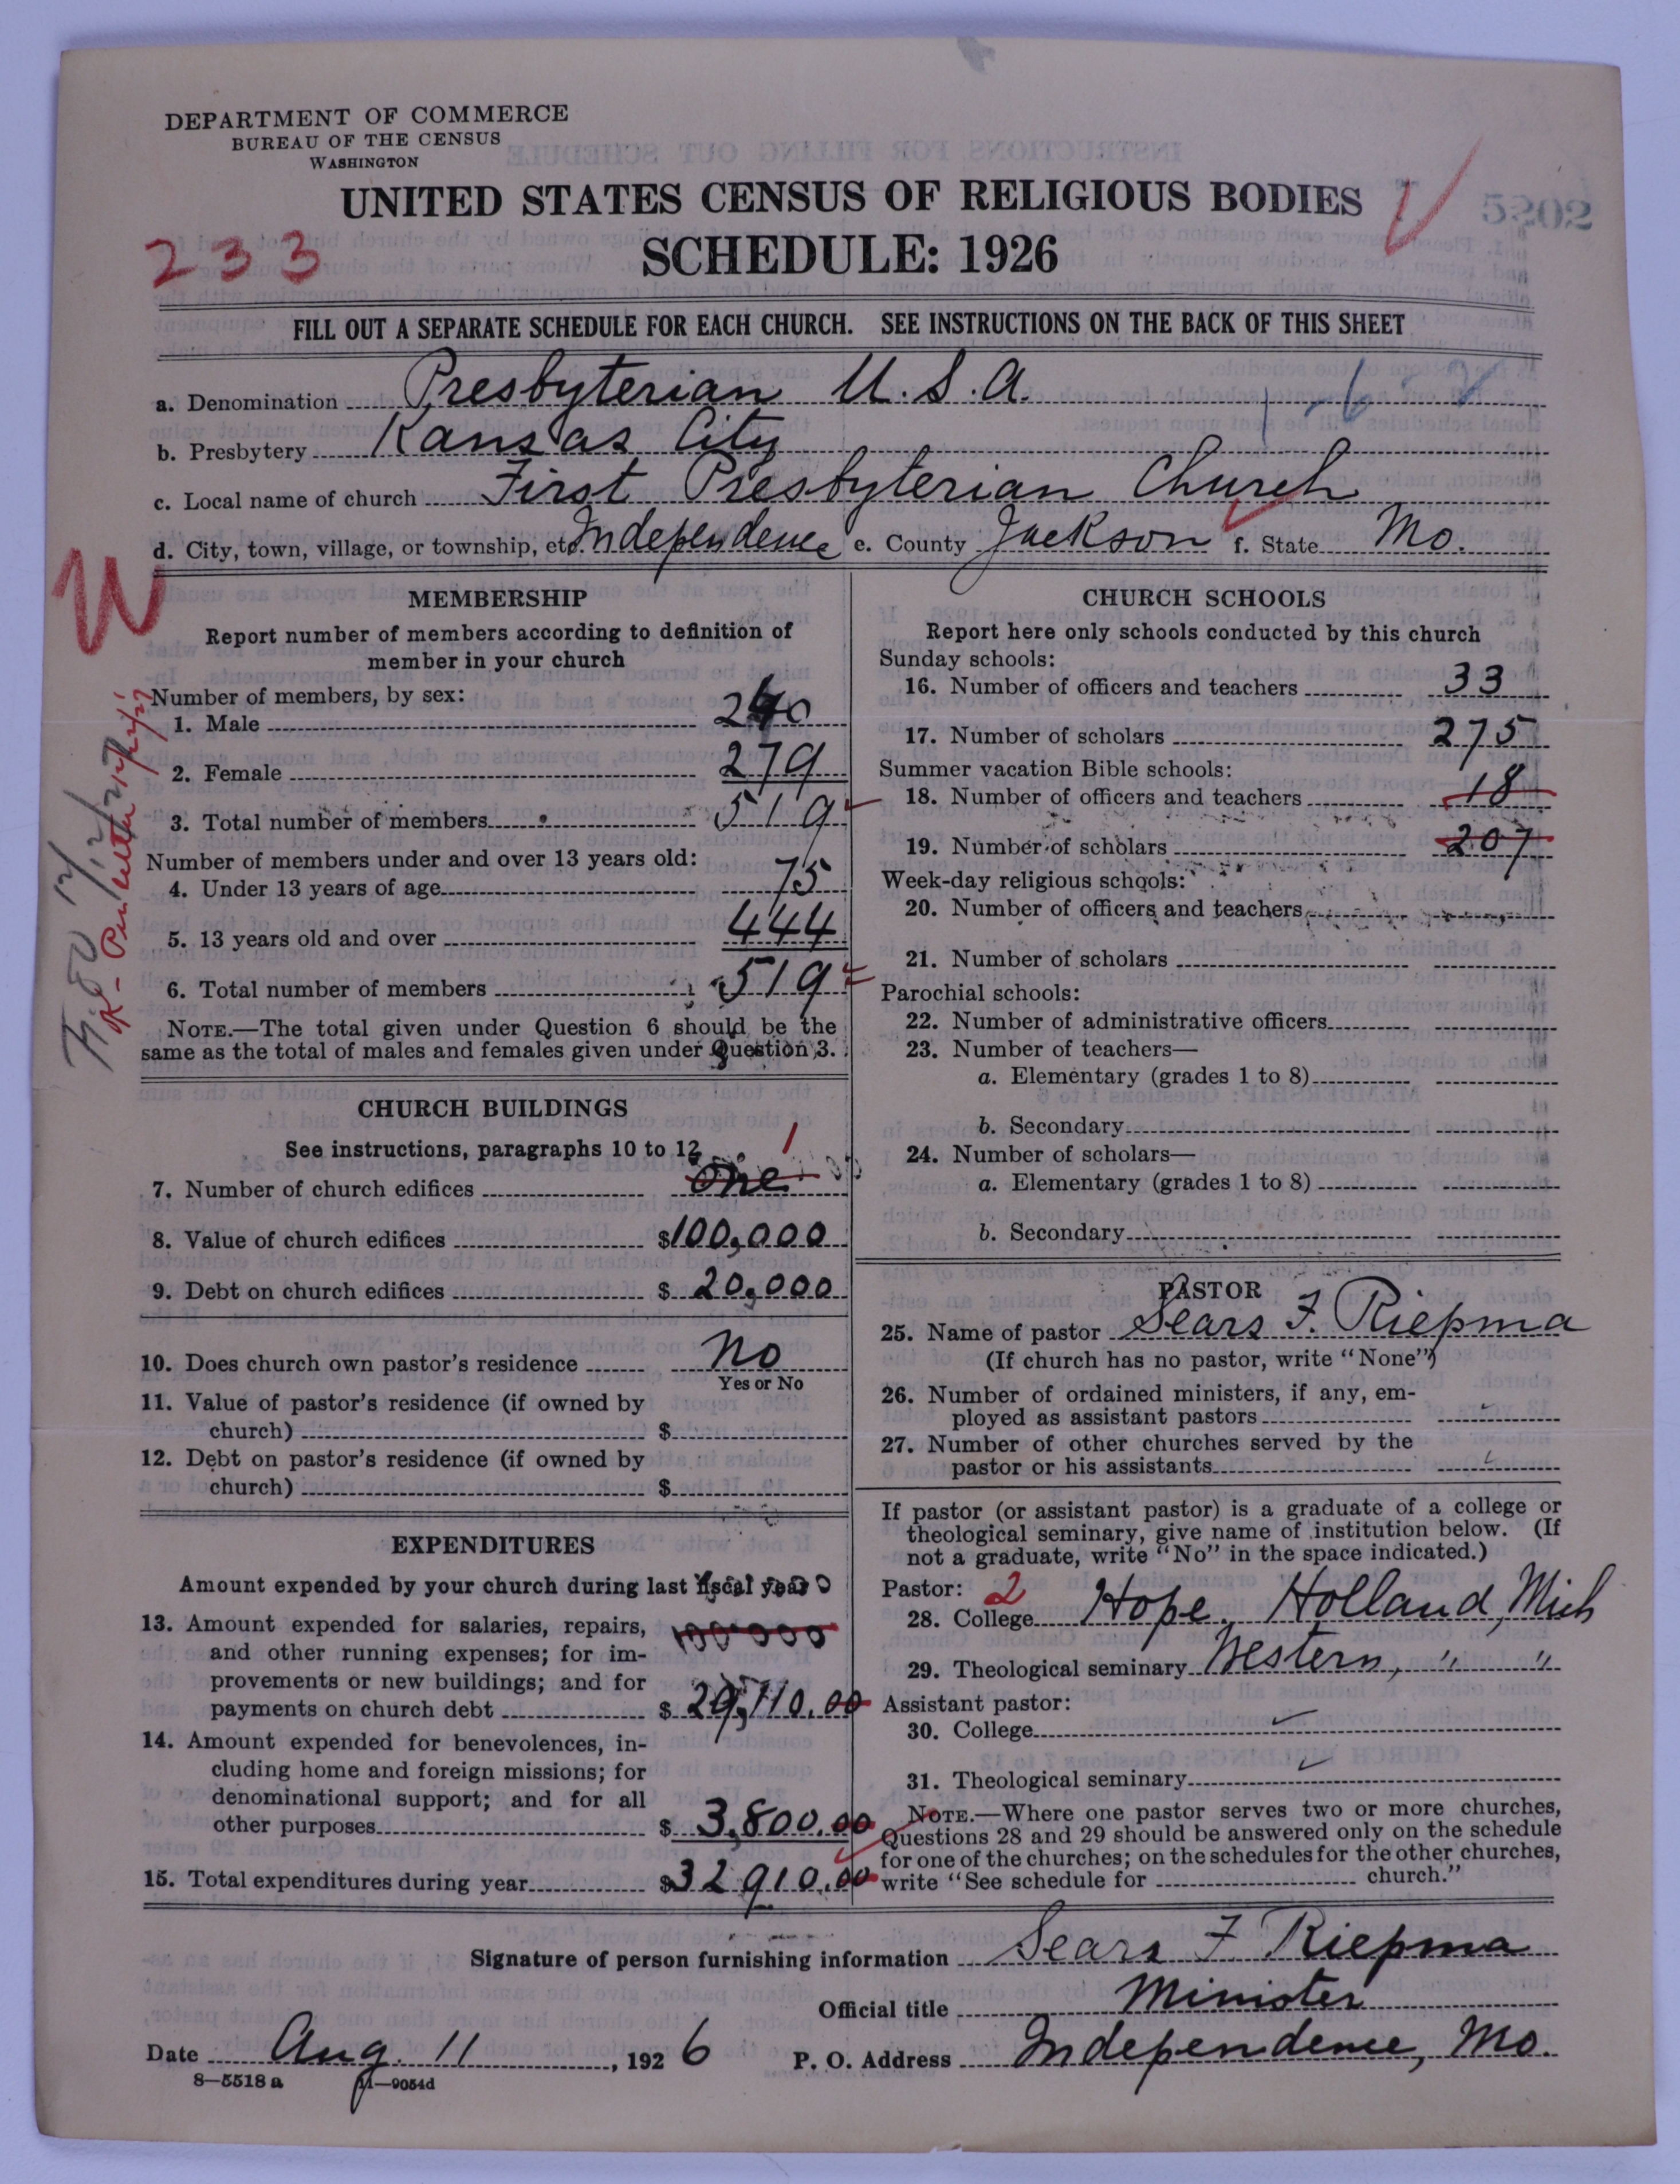 DEPARTMENT OF COMMERCE
BUREAU OF THE CENSUS
WASHINGTON
UNITED STATES CENSUS OF RELIGIOUS BODIES
5202
233
SCHEDULE: 1926
FILL OUT A SEPARATE SCHEDULE FOR EACH CHURCH. SEE INSTRUCTIONS ON THE BACK OF THIS SHEET
a. Denomination Presbyterian U.S.A.
b. Presbytery Kansas City
c. Local name of church First Presbyterian Church
d. City, town, village, or township, etc. Independence e. County Jackson f. State Mo.
MEMBERSHIP
Report number of members according to definition of
member in your church
Number of members, by sex:
1. Male 240
2. Female 279
3. Total number of members 519
Number of members under and over 13 years old:
4. Under 13 years of age 75
5. 13 years old and over 444
6. Total number of members 519
NOTE.—The total given under Question 6 should be the
same as the total of males and females given under Question 3.
CHURCH BUILDINGS
See instructions, paragraphs 10 to 12
1
7. Number of church edifices One
8. Value of church edifices $100,000
9. Debt on church edifices $ 20,000
10. Does church own pastor's residence No
Yes or No
11. Value of pastor's residence (if owned by
church) $
12. Debt on pastor's residence (if owned by
church) $
EXPENDITURES
Amount expended by your church during last fiscal year
13. Amount expended for salaries, repairs,
and other running expenses; for im-
provements or new buildings; and for
payments on church debt $ 29,110.00
14. Amount expended for benevolences, in-
cluding home and foreign missions; for
denominational support; and for all
other purposes $ 3,800.00
15. Total expenditures during year $32910.00
CHURCH SCHOOLS
Report here only schools conducted by this church
Sunday schools:
16. Number of officers and teachers 33
17. Number of scholars 275
Summer vacation Bible schools:
18. Number of officers and teachers 18
19. Number of scholars 207
Week-day religious schools:
20. Number of officers and teachers
21. Number of scholars
Parochial schools:
22. Number of administrative officers
23. Number of teachers—
a. Elementary (grades 1 to 8)
b. Secondary
24. Number of scholars—
a. Elementary (grades 1 to 8)
b. Secondary
PASTOR
25. Name of pastor Sears F. Riepma
(If church has no pastor, write "None")
26. Number of ordained ministers, if any, em-
ployed as assistant pastors
27. Number of other churches served by the
pastor or his assistants
If pastor (or assistant pastor) is a graduate of a college or
theological seminary, give name of institution below. (If
not a graduate, write "No" in the space indicated.)
Pastor: 2
28. College Hope, Holland, Mich
29. Theological seminary Western, " "
Assistant pastor:
30. College
31. Theological seminary
NOTE.—Where one pastor serves two or more churches,
Questions 28 and 29 should be answered only on the schedule
for one of the churches; on the schedules for the other churches,
write "See schedule for church."
Signature of person furnishing information Sears F Riepma
Official title Minister
Date Aug. 11, 1926 P. O. Address Independence, Mo.
8—5518 a 11—9054d